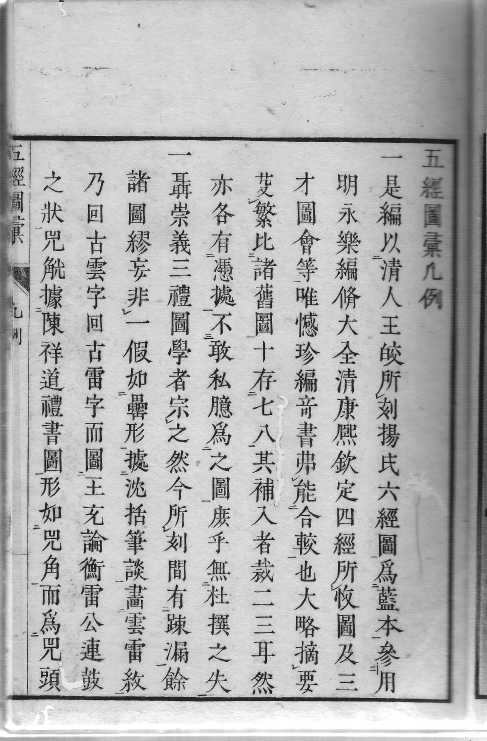 五經圖彙凡例
一是編以清人王皜所刻楊氏六經圖為藍本參用
明永樂編脩大全清康熙欽定四經所收圖及三
才圖會等唯憾珍編奇書弗能合較也大略摘要
芟繁比諸舊圖十存七八其補入者裁二三耳然
亦各有憑據不敢私臆為之圖庶乎無杜撰之失
一聶崇義三禮圖學者宗之然今所刻間有踈漏餘
諸圖繆妄非一假如罍形據沈括筆談畵雲雷敘
乃回古雲字回古雷字而圖王充論衡雷公連鼓
之狀兕觥據陳祥道禮書圖形如兕角而為兕頭
五經圖彙
凡例